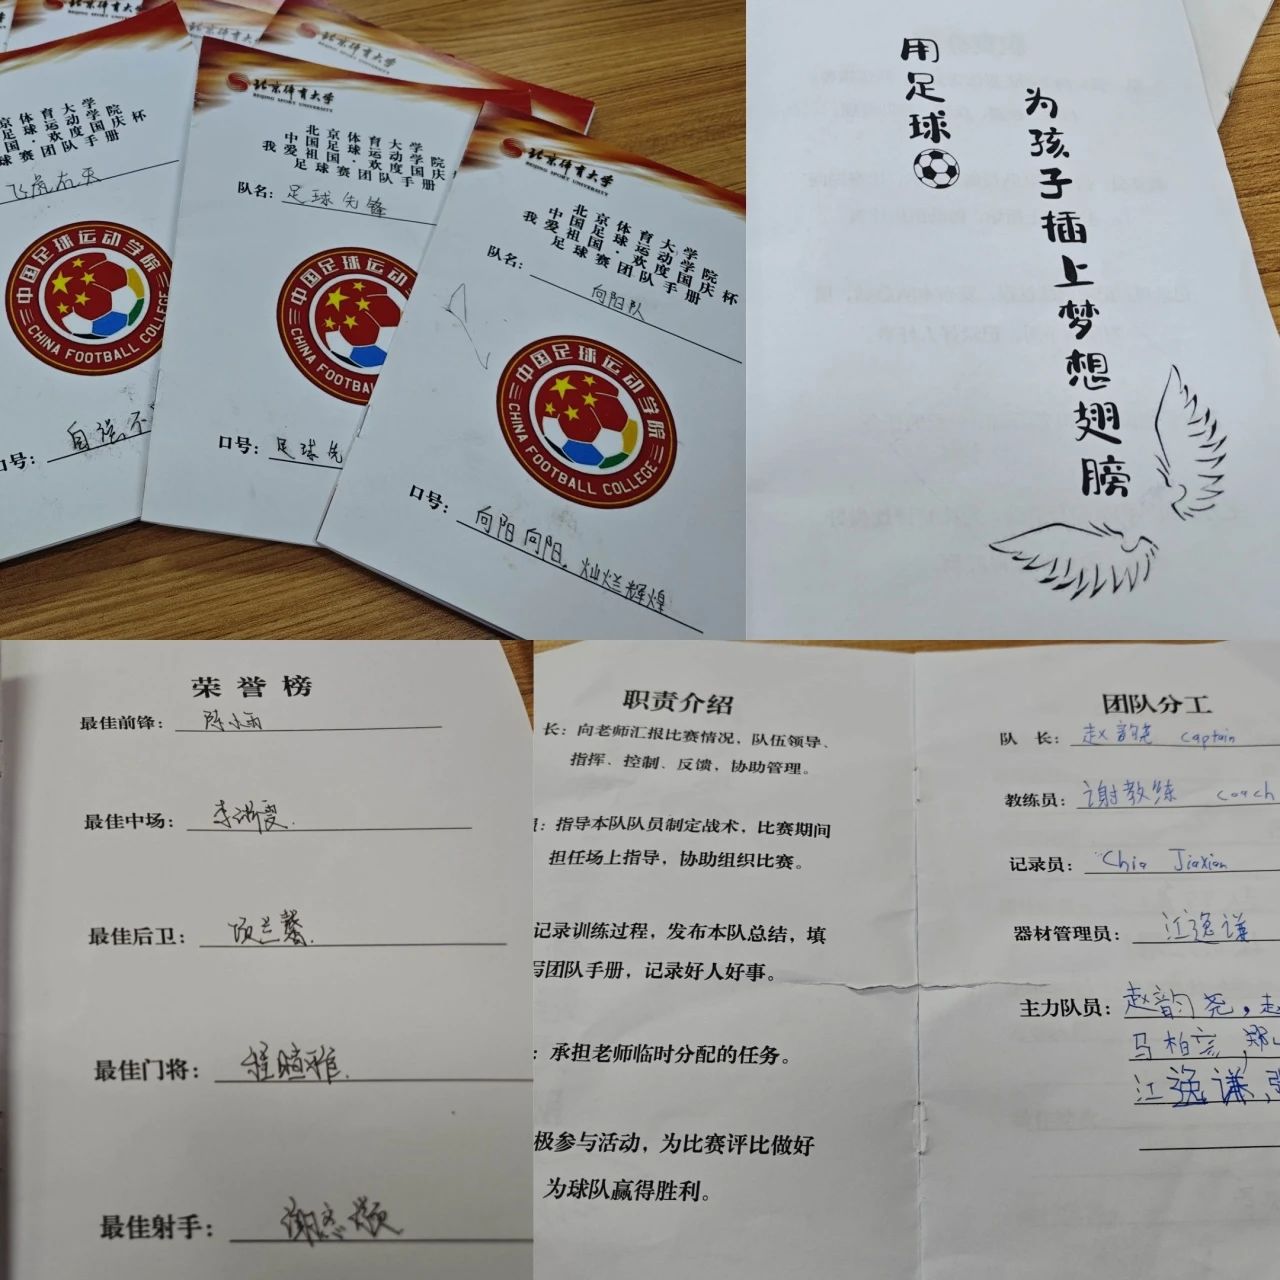 北京体育大学
BEIJING SPORT UNIVERSITY
北京体育大学
中国足球运动学院
我爱祖国·欢度国庆杯
足球赛团队手册
飞虎右天
中国足球运动学院
CHINA FOOTBALL COLLEGE
口号：
自强不
北京体育大学
BEIJING SPORT UNIVERSITY
北京体育大学
中国足球运动学院
我爱祖国·欢度国庆
足球赛团队手册
队名：足球先锋
中国足球运动
CHINA FOOTBALL
口号：足球先
北京体育大学
BEIJING SPORT UNIVERSITY
北京体育大学
中国足球运动学院
我爱祖国·欢度国庆杯
足球赛团队手册
队名：向阳队
中国足球运动学院
CHINA FOOTBALL COLLEGE
口号：向阳向阳，灿烂辉煌
用足球
为孩子插上梦想翅膀
荣誉榜
最佳前锋：陈小雨
最佳中场：
最佳后卫：
最佳门将：
最佳射手：
职责介绍
长：向老师汇报比赛情况，队伍领导、
指挥、控制、反馈，协助管理。
指导本队队员制定战术，比赛期间
担任场上指导，协助组织比赛。
记录训练过程，发布本队总结，填
写团队手册，记录好人好事。
：承担老师临时分配的任务。
极参与活动，为比赛评比做好
为球队赢得胜利。
团队分工
队 长：赵韵尧 captain
教练员：谢教练 coach
记录员：Chia Jiaxian
器材管理员：江逸谦
主力队员：赵韵尧，赵
马柏彦，郑
江逸谦，张